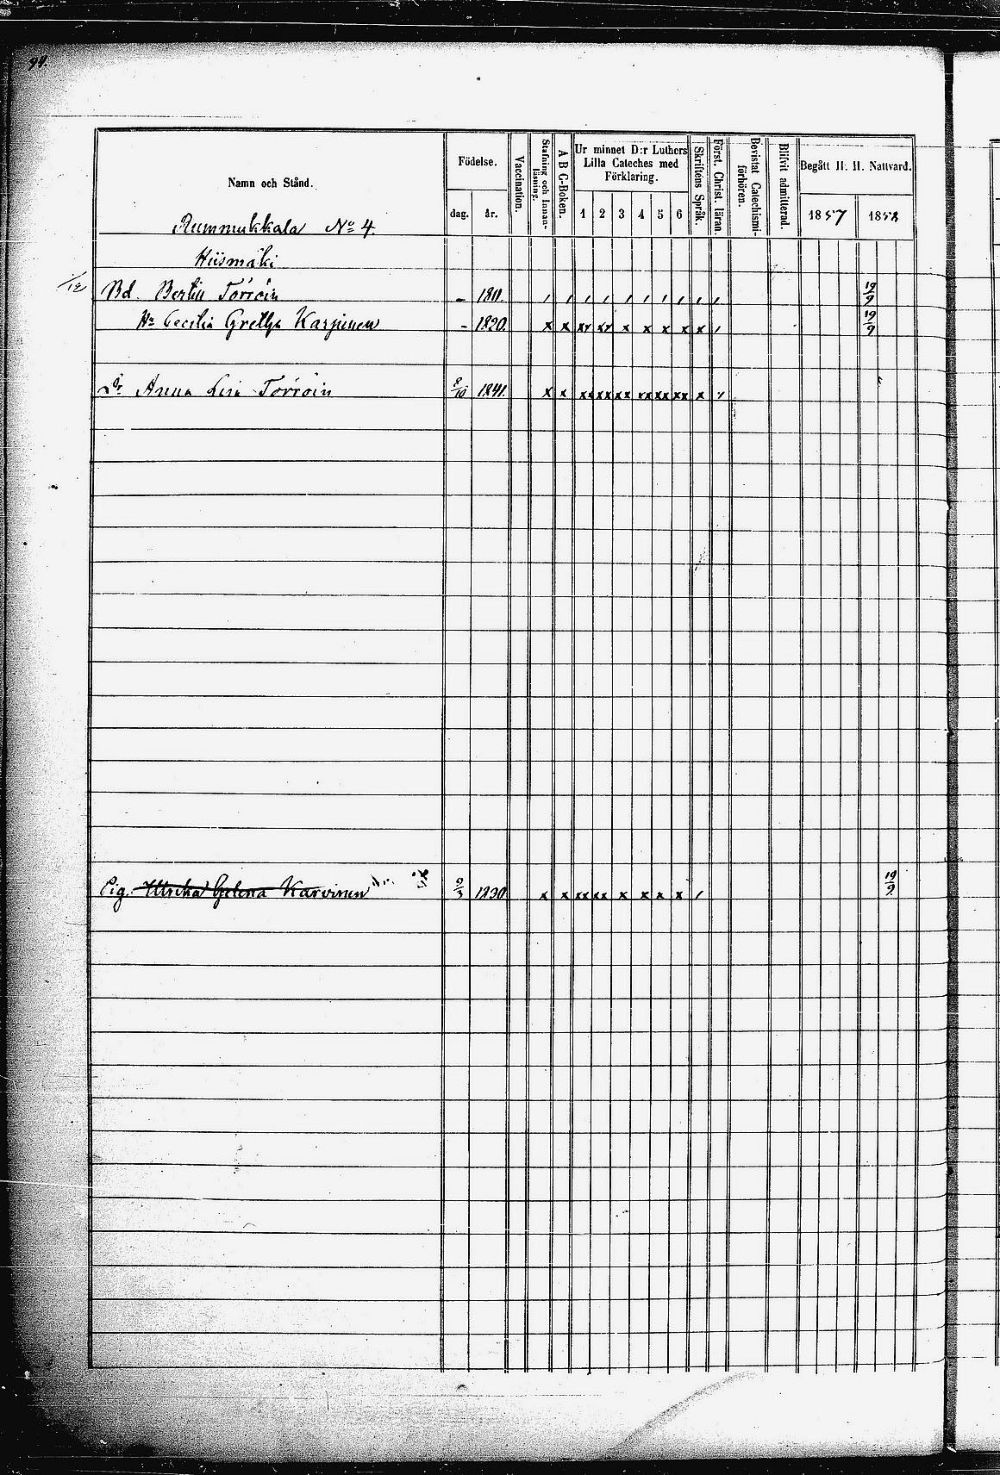 94.
Namn och Stånd.
Födelse.
dag.
år.
Vaccination.
Stafning och Innan-läsning.
A B C-Boken.
Ur minnet D:r Luthers
Lilla Cateches med
Förklaring.
1 2 3 4 5 6
Skriftens Språk.
Först. Christ. läran.
Bevistat Catechismi-förhören.
Blifvit admitterad.
Begått H. H. Nattvard.
1857 1858
Rummukkala No 4
Hiismäki
Bd. Bertil Törröin - 1811. 19/9
Hu Cecilia Gretha Karjunen - 1820. 19/9
Dr Anna Lisa Törröin 8/10 1841.
Pig. Ulrika Helena Karvinen 9/3 1830. 19/9